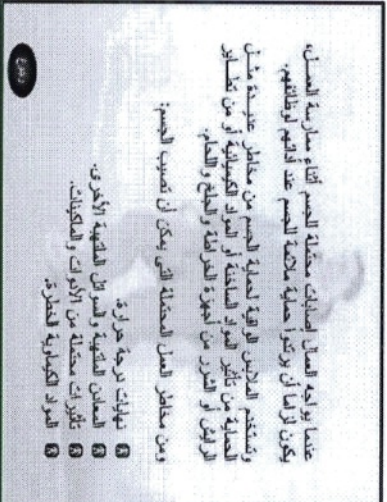 عندما يواجه العمال إصابات محتملة للجسم أثناء ممارسة العمل،
يكون لزاما أن يرتدوا حماية ملائمة للجسم عند أدائهم لوظائفهم.
وتستخدم الملابس الواقية لحماية الجسم من مخاطر عديدة مثل
الحماية من تأثير المواد الساخنة أو المواد الكيميائية أو من تطاير
الرايش أو الشرر من أجهزة الخراطة والجلخ واللحام.
ومن مخاطر العمل المحتملة التي يمكن أن تصيب الجسم:
نهايات درجة حرارة.
المعادن الملتهبة والسوائل الملتهبة الأخرى.
تأثيرات محتملة من الأدوات والماكينات.
المواد الكيماوية الخطرة.
رجوع